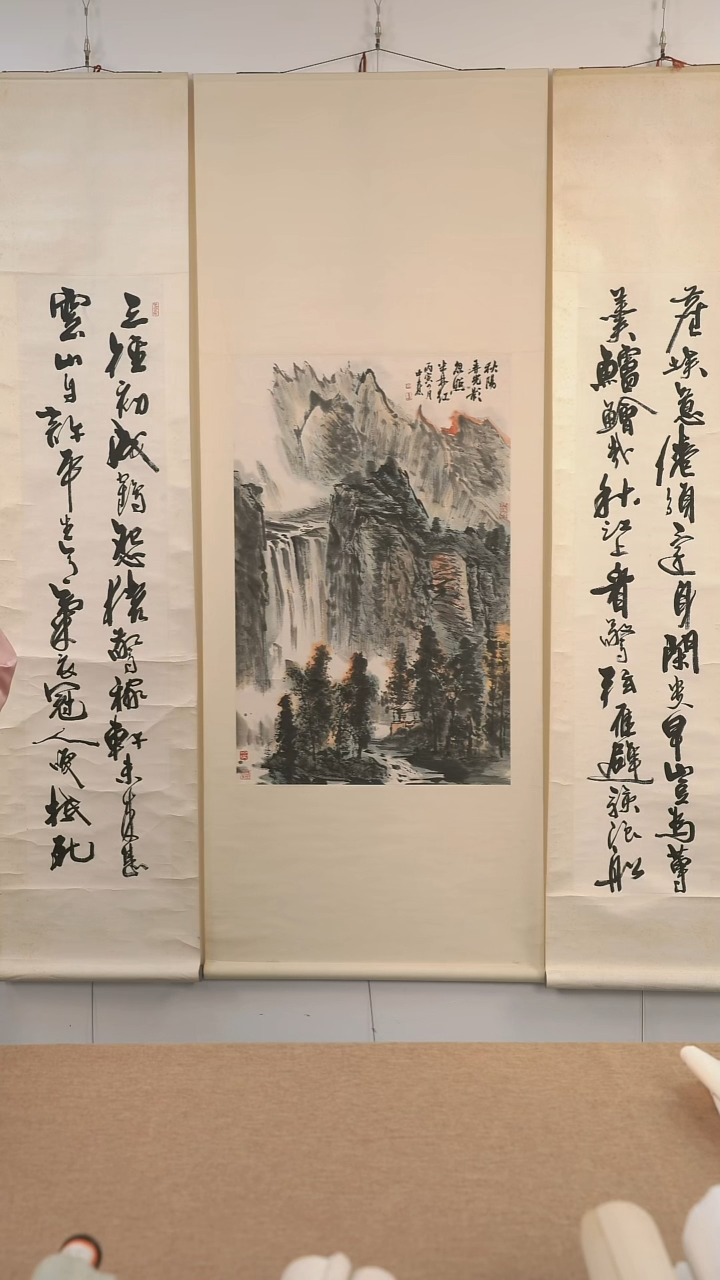 三徑初成鶴怨猿驚稼軒未來甚
雲山自許平生意氣衣冠人笑抵死
秋陽
弄光影
忽
半林紅
丙寅月
塵埃意倦須還身閑貴早豈為蓴
羹鱸鱠哉秋江上看驚弦雁避駭浪船